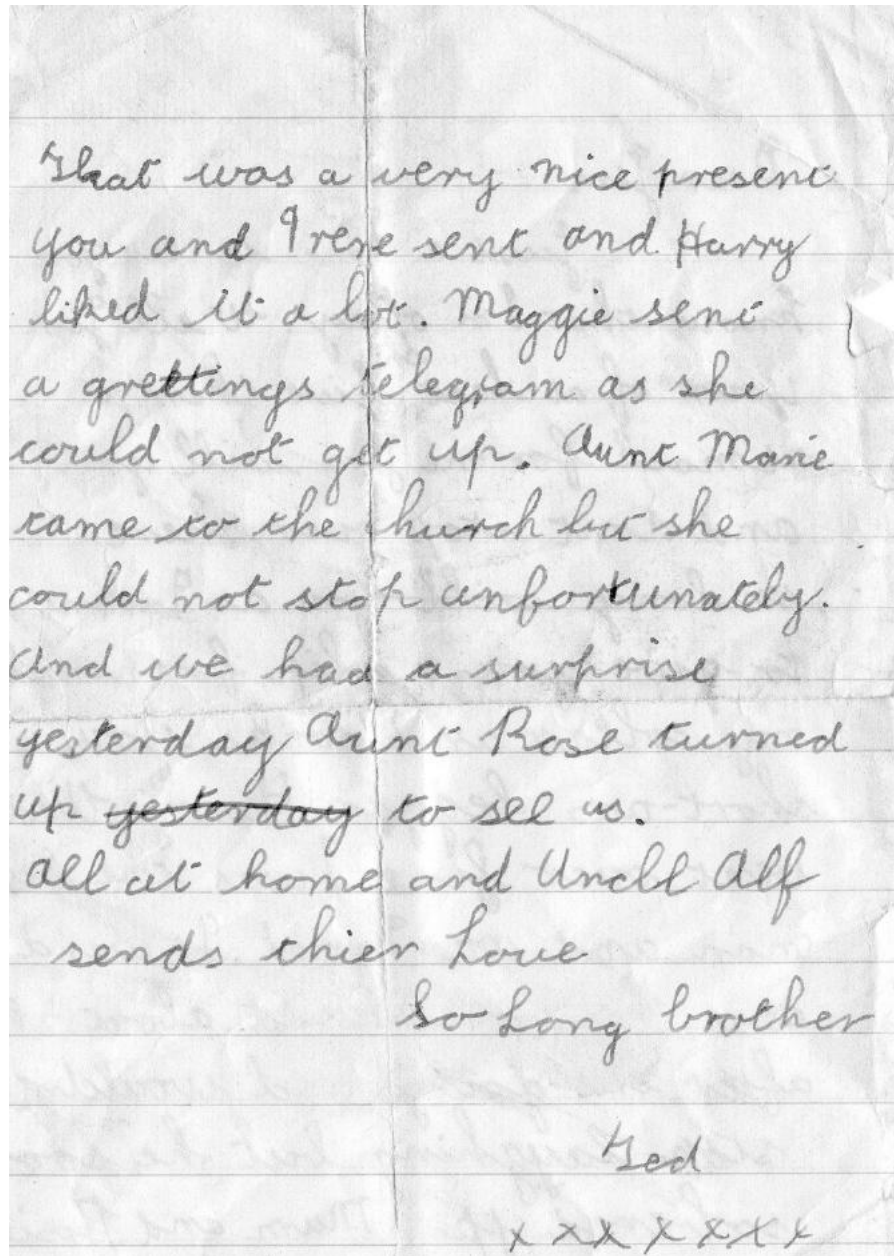 That was a very nice present
you and Irene sent and Harry
liked it a lot. Maggie sent
a grettings telegram as she
could not get up. Aunt Marie
came to the church but she
could not stop unfortunately.
And we had a surprise
yesterday Aunt Rose turned
up yesterday to see us.
All at home and Uncle Alf
sends thier Love
So Long brother
Ted
x x x x x x x